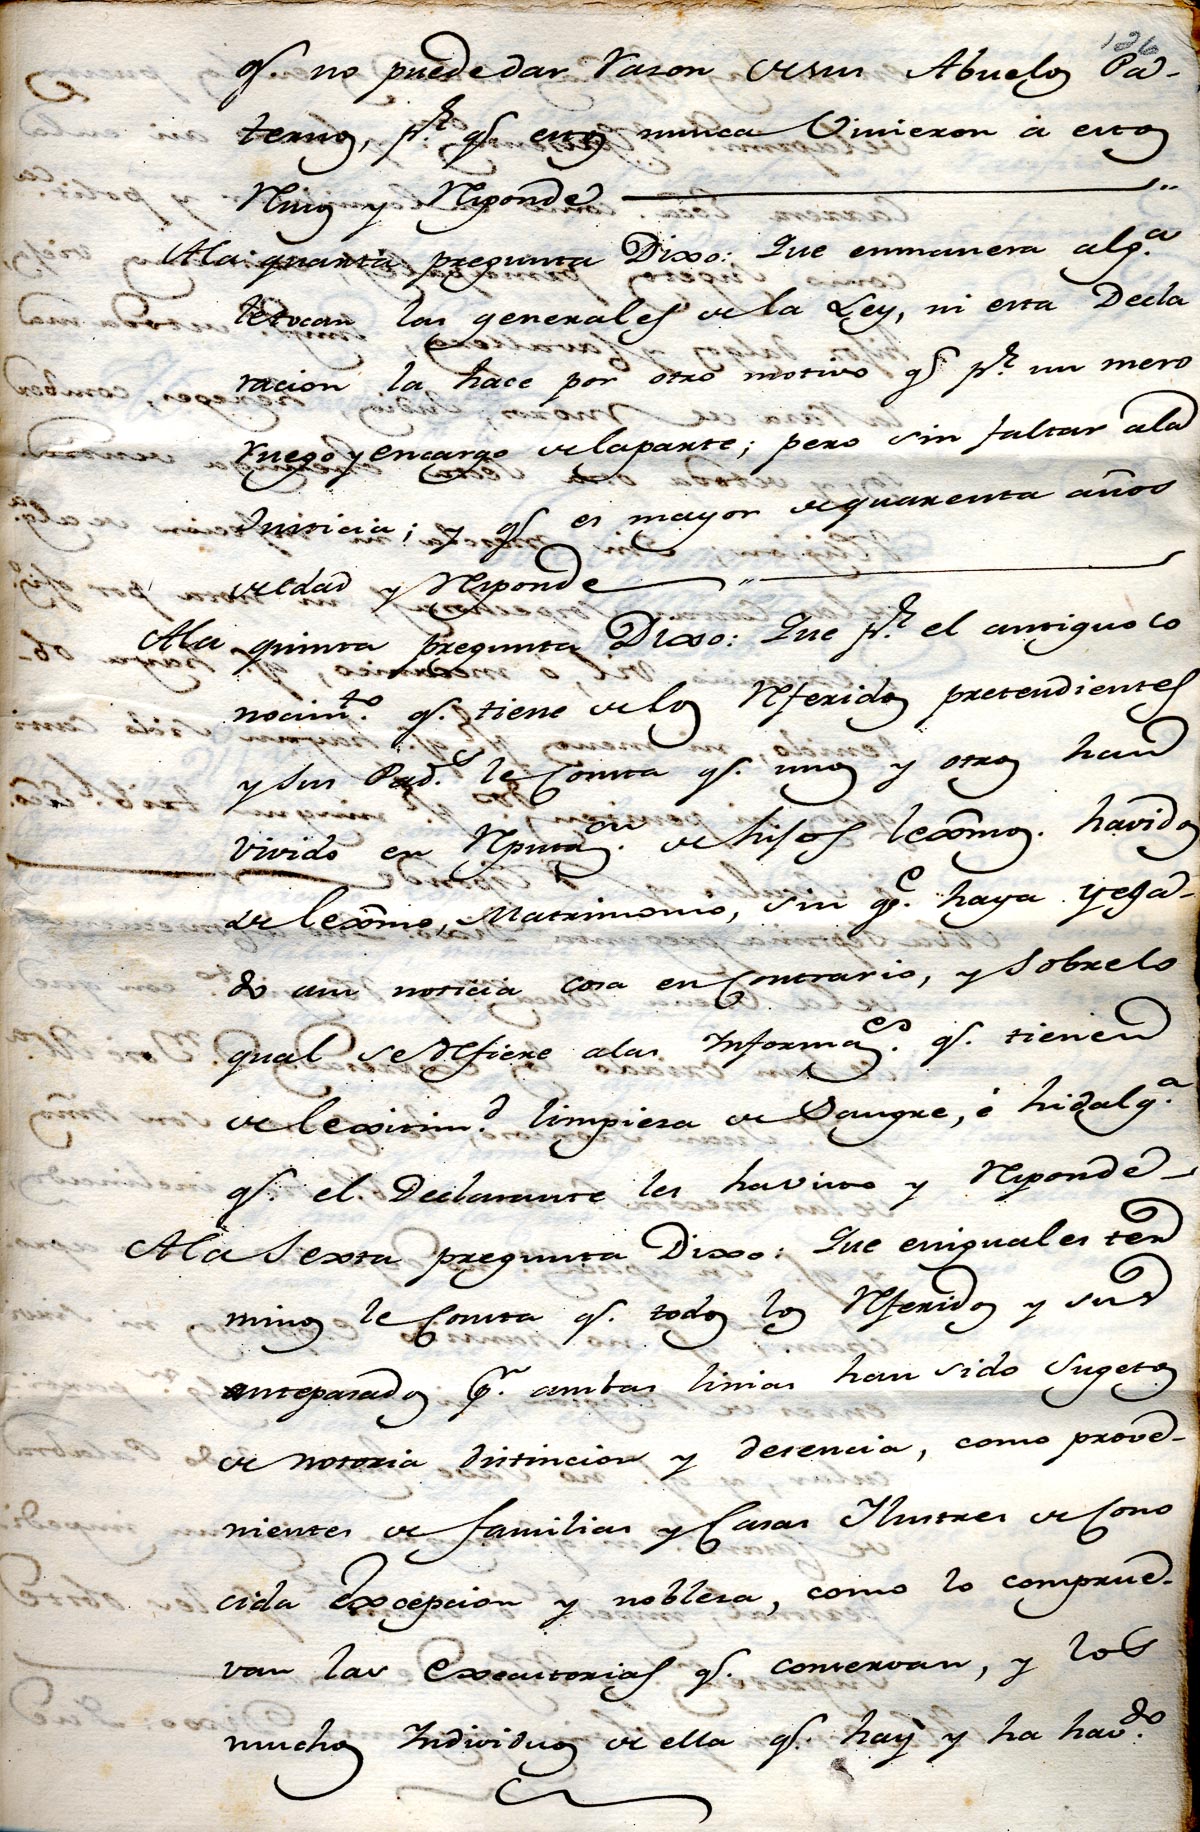 126
q.e no puede dar rason de sus Abuelos Pa-
ternos, p.r q.e estos nunca Vinieron à estos
Rinos y Responde
A la quarta pregunta Dixo: Que enmanera alg.a
letocan las generales de la Ley, ni esta Decla
racion la hace por otro motivo q.e p.r un mero
ruego y encargo de laparte; pero sin faltar ala
Justicia; y q.e es mayor de quarenta años
de edad y Responde
A la quinta pregunta Dixo: Que p.r el antiguo co
nocim.to q.e tiene de los Referidos pretendientes
y sus Pad.s le Consta q.e unos y otros han
vivido en Reputa.on de hijos lexmos. havidos
de lexmo, Matrimonio, sin q.e haya llega-
do a su noticia cosa en Contrario, y Sobrelo
qual se Refiere alas Informa.es q.e tienen
de lexitim.d limpiesa de Sangre, é hidalg.a
q.e el Declarante les havisto y Responde
A la Sexta pregunta Dixo: Que en iguales ter
minos le Consta q.e todos los Referidos y sus
antepasados p.r ambas linias han sido Sugetos
de notoria distincion y desencia, como prove-
nientes de familias y Casas Ilustres de Cono
cida Excepcion y noblesa, como lo comprue-
van las Executorias q.e conservan, y los
muchos Individuos de ella q.e hay y ha hav.do